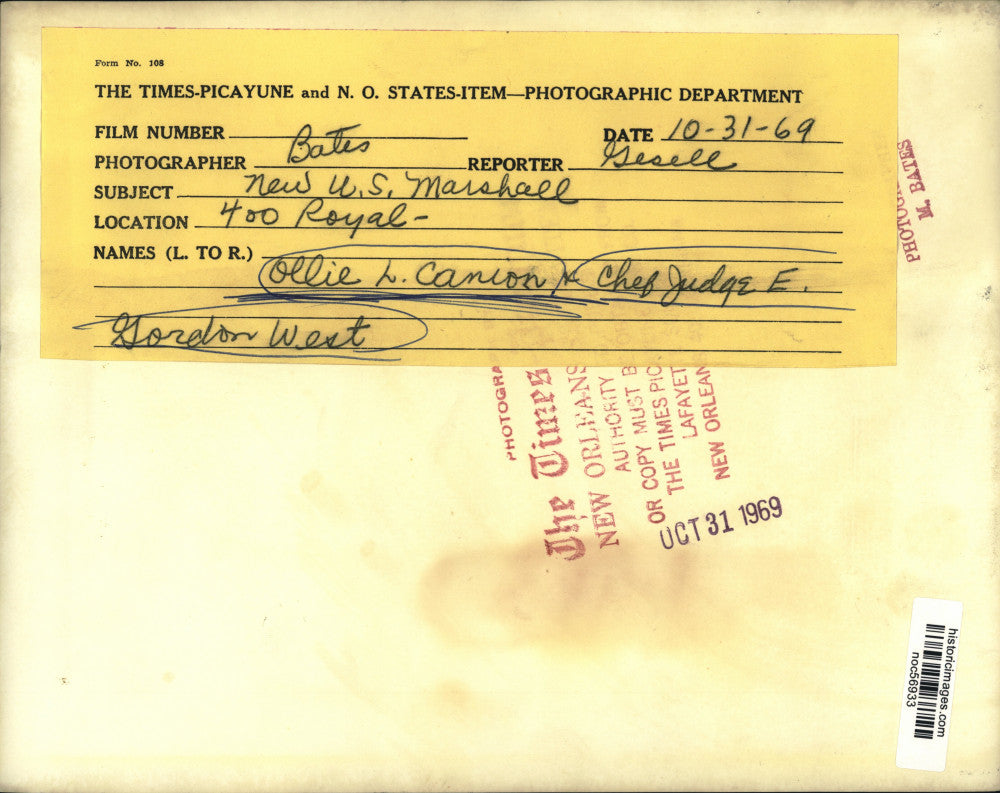 Form No. 108
THE TIMES-PICAYUNE and N. O. STATES-ITEM—PHOTOGRAPHIC DEPARTMENT
FILM NUMBER
DATE 10-31-69
PHOTOGRAPHER Bates
REPORTER Gesell
SUBJECT New U.S. Marshall
LOCATION 400 Royal-
NAMES (L. TO R.)
Ollie L. Canion + Chef Judge E.
Gordon West
M. BATES
PHOTOGRA
The Times
NEW ORLEANS
AUTHORITY
OR COPY MUST B
THE TIMES PIC
LAFAYET
NEW ORLEAN
OCT 31 1969
historicimages.com
noc56933